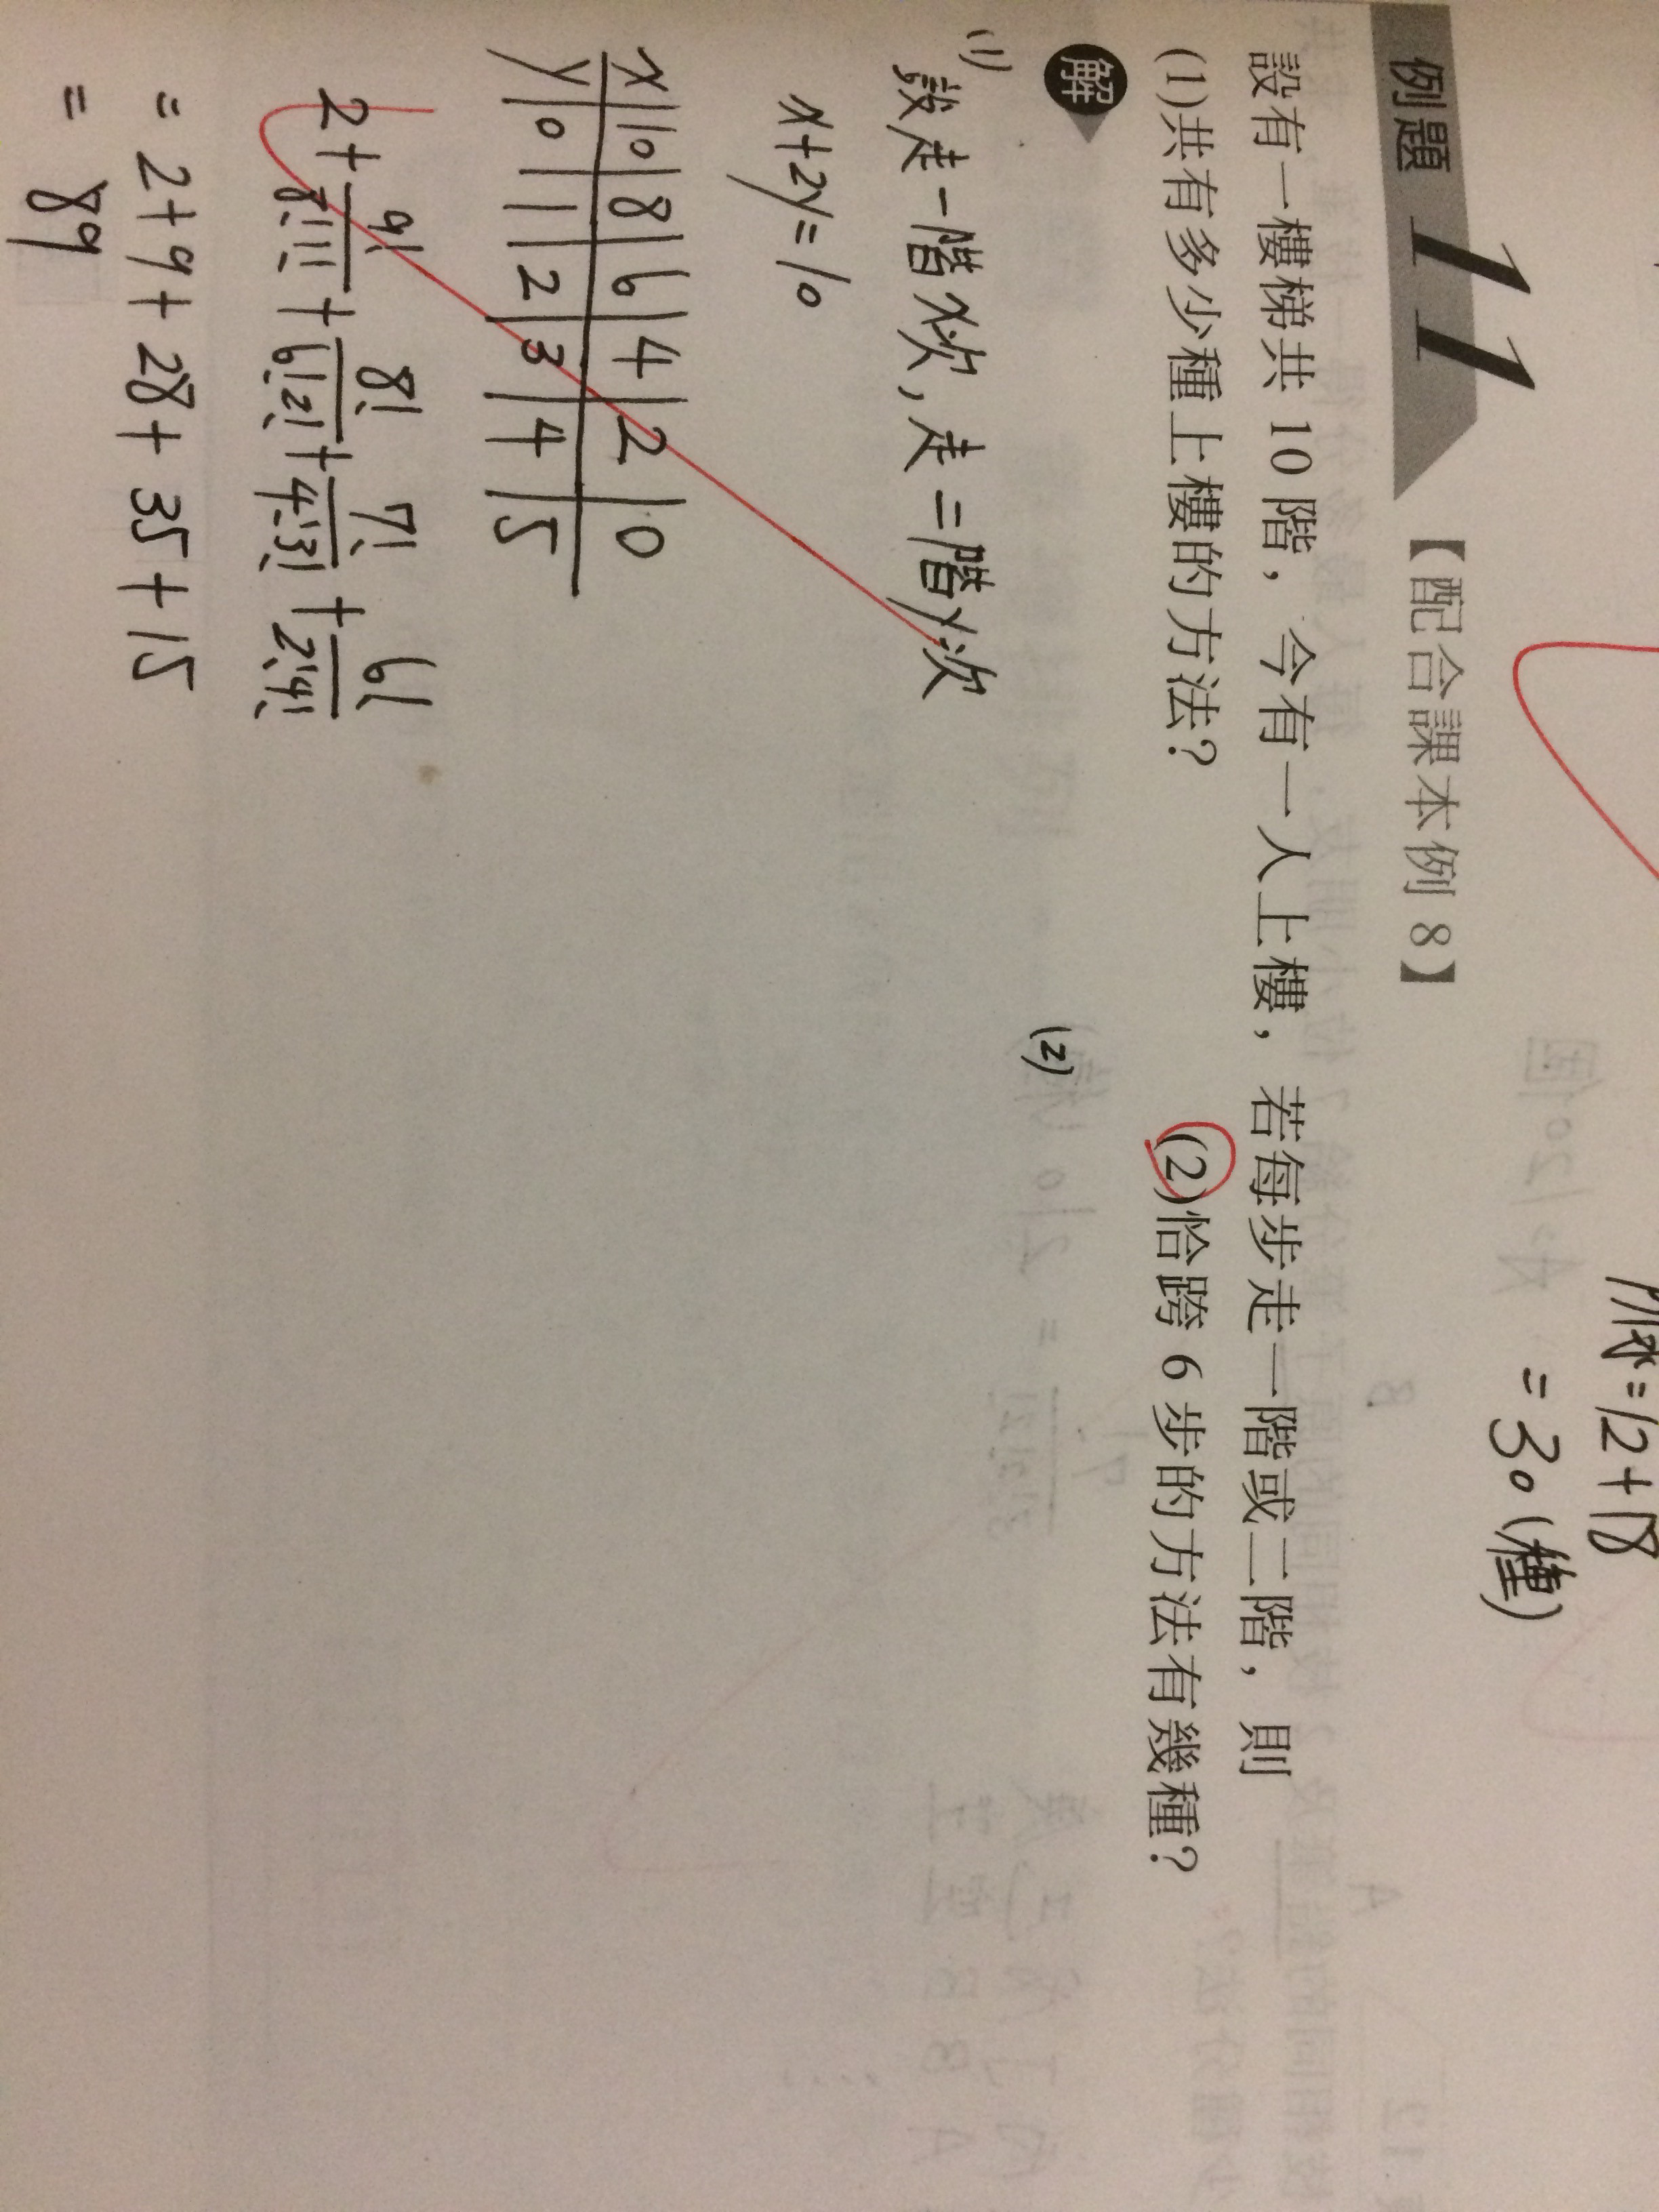 則所求=12+18
=30(種)
例題 11 【配合課本例 8】
設有一樓梯共 10 階，今有一人上樓，若每步走一階或二階，則
(1)共有多少種上樓的方法？ (2)恰跨 6 步的方法有幾種？
解
(1) (2)
設走一階x次，走二階y次
x+2y=10
x|10|8|6|4|2|0
y|0|1|2|3|4|5
2+9!/8!1!+8!/6!2!+7!/4!3!+6!/2!4!
=2+9+28+35+15
=89